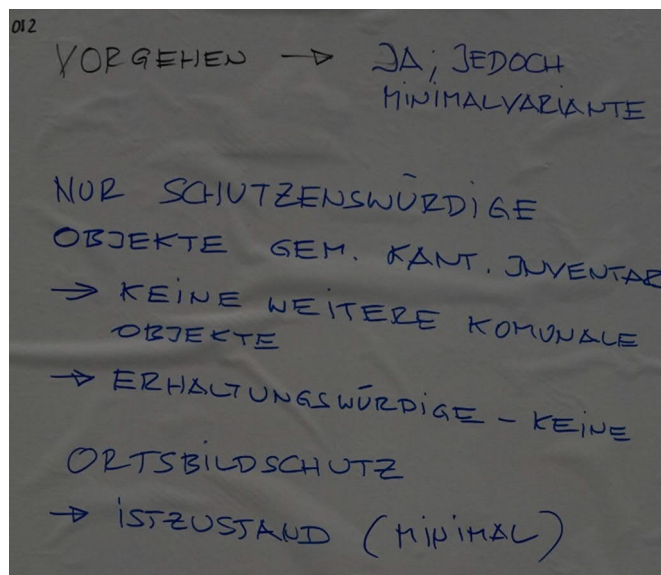 012
VORGEHEN → JA; JEDOCH
MINIMALVARIANTE
NUR SCHUTZENSWÜRDIGE
OBJEKTE GEM. KANT. INVENTAR
→ KEINE WEITERE KOMUNALE
OBJEKTE
→ ERHALTUNGSWÜRDIGE – KEINE
ORTSBILDSCHUTZ
→ ISTZUSTAND (MINIMAL)